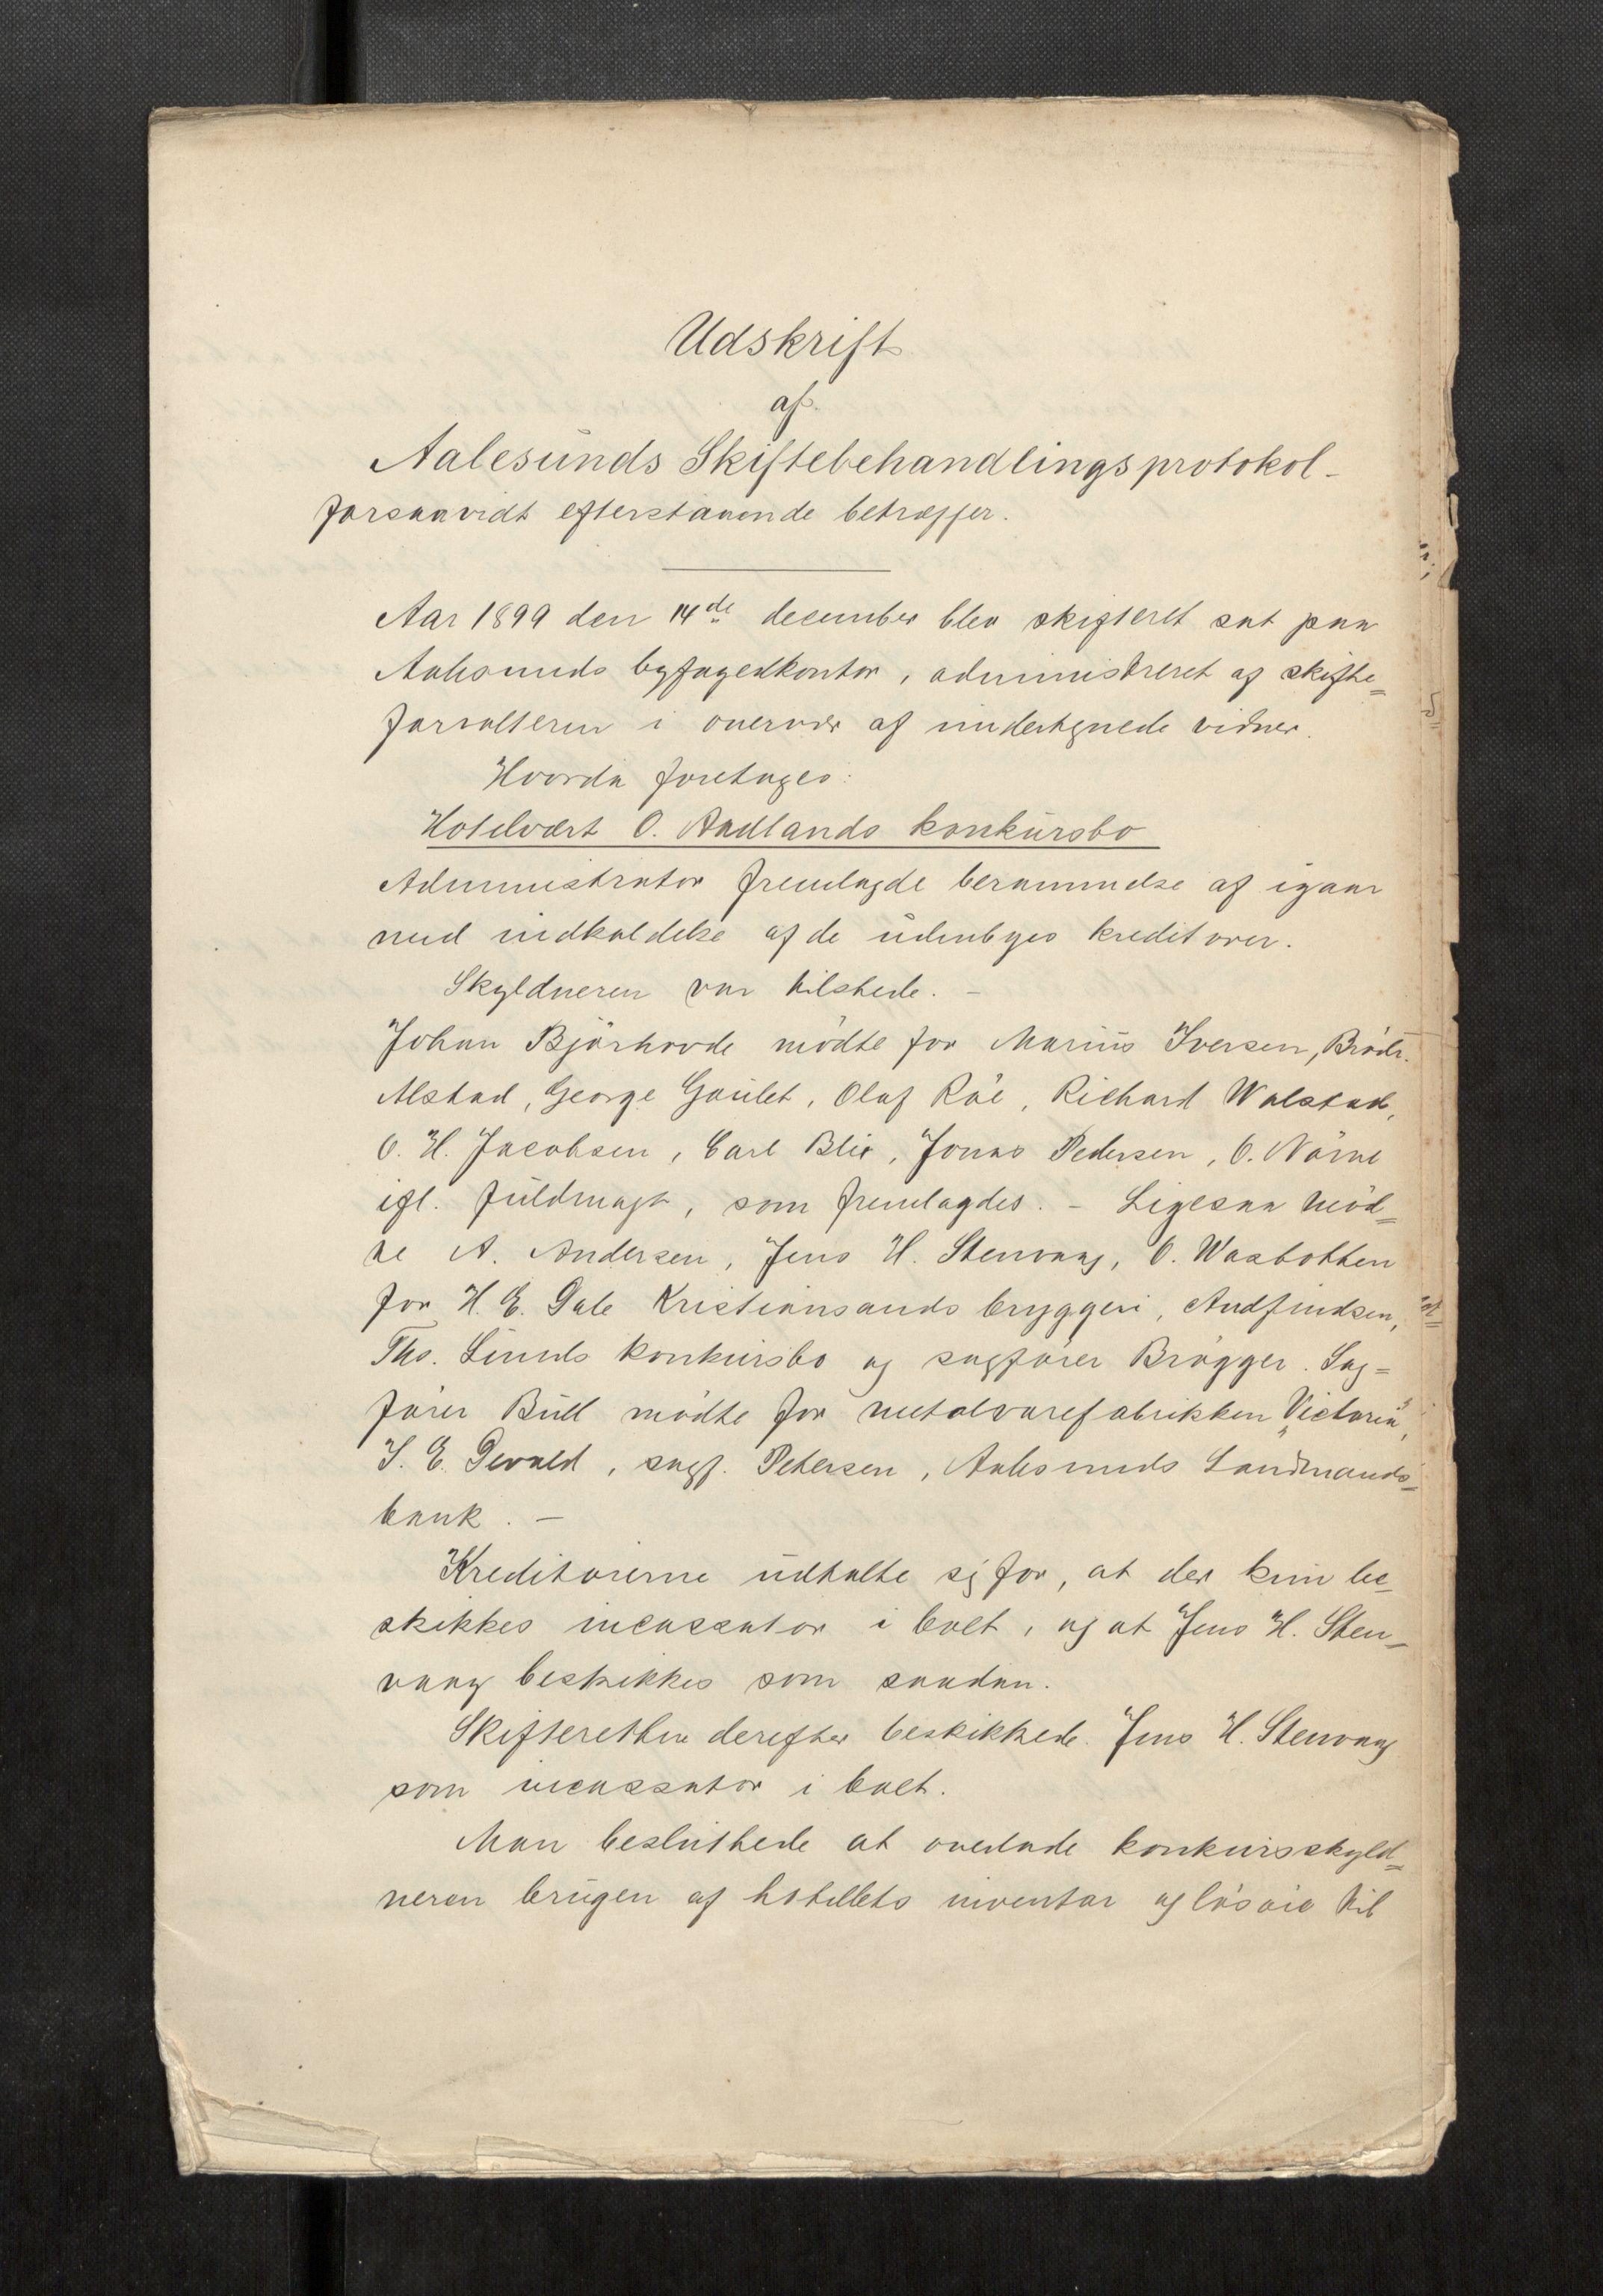 Udskrift
af
Aalesunds Skiftebehandlingsprotokol-
forsaavidt efterstaaende betræffer.
Aar 1899 den 14de december blev skifteret sat paa
Aalesunds byfogedkontor, administreret af skifte=
forvalteren i overvær af undertegnede vidner.
Hvorda foretages:
Hotelvært O. Aadlands konkursbo
Administrator fremlagde berammelse af igaar
med indkaldelse af de udenbyes kreditorer.
Skyldneren var tilstede. –
Johan Bjørhovde mødte for Marius Iversen, Brødr.
Alstad, George Goulet, Olaf Röe, Richard Walstad,
O. H. Jacobsen, Carl Blix, Jonas Pedersen, O. Nörve
ifl. fuldmagt, som fremlagdes. – Ligesaa mød=
te A. Andersen, Jens H. Stenvaag, O. Wasbotten
for H. E. Dale Kristiansands bryggeri, Andfindsen,
Ths. Lunds konkursbo og sagfører Brøgger. Sag=
fører Bull mødte for metalvarefabrikken „Victoria",
I. E. Devold, sagf. Petersen, Aalesunds Landmands=
bank. –
Kreditorerne udtalte sig for, at der kun be=
skikkes incassator i boet, og at Jens H. Sten=
vaag beskikkes som saadan.
Skifteretten derefter beskikkede Jens H. Stenvaag
som incassator i boet.
Man besluttede at overlade konkursskyld=
neren brugen af hotellets inventar og løsøre til